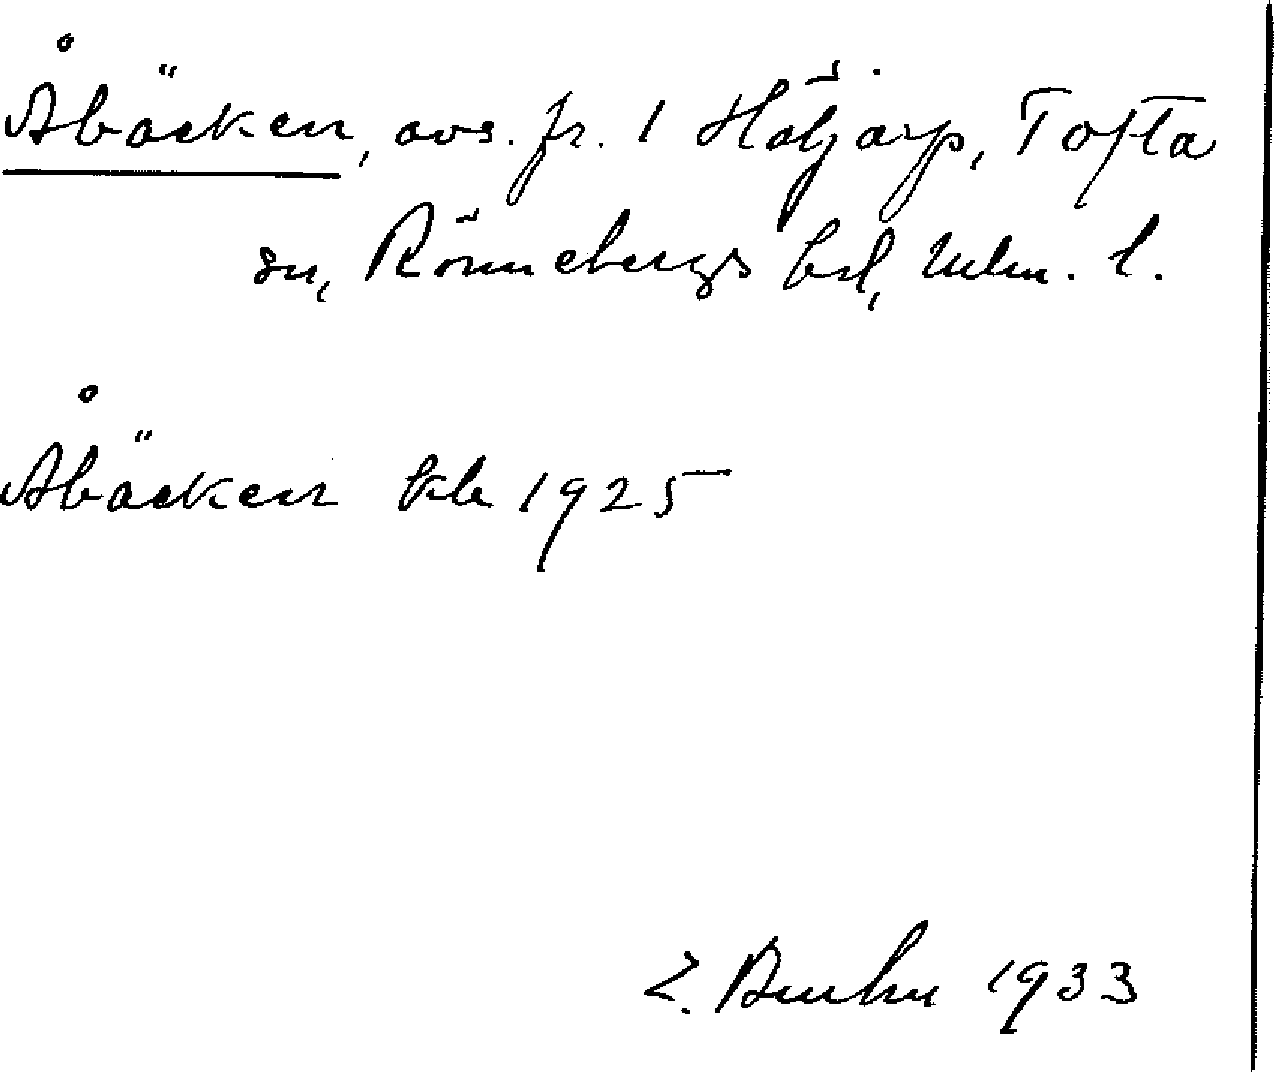 Åbäcken, avs. fr. 1 Häljarp, Tofta
sn, Rönnebergs hd, Mlm. l.
Åbäcken kk 1925
1933